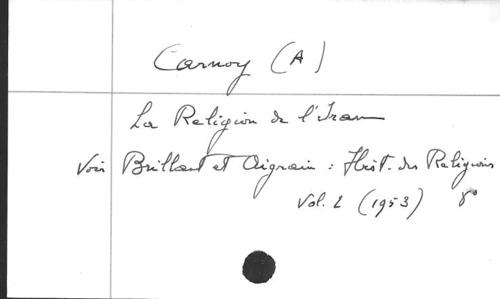 Carnoy (A)
La Religion de l'Iran
Voir Brillant et Aigrain : Hist. des Religions
Vol. 2 (1953) 8°